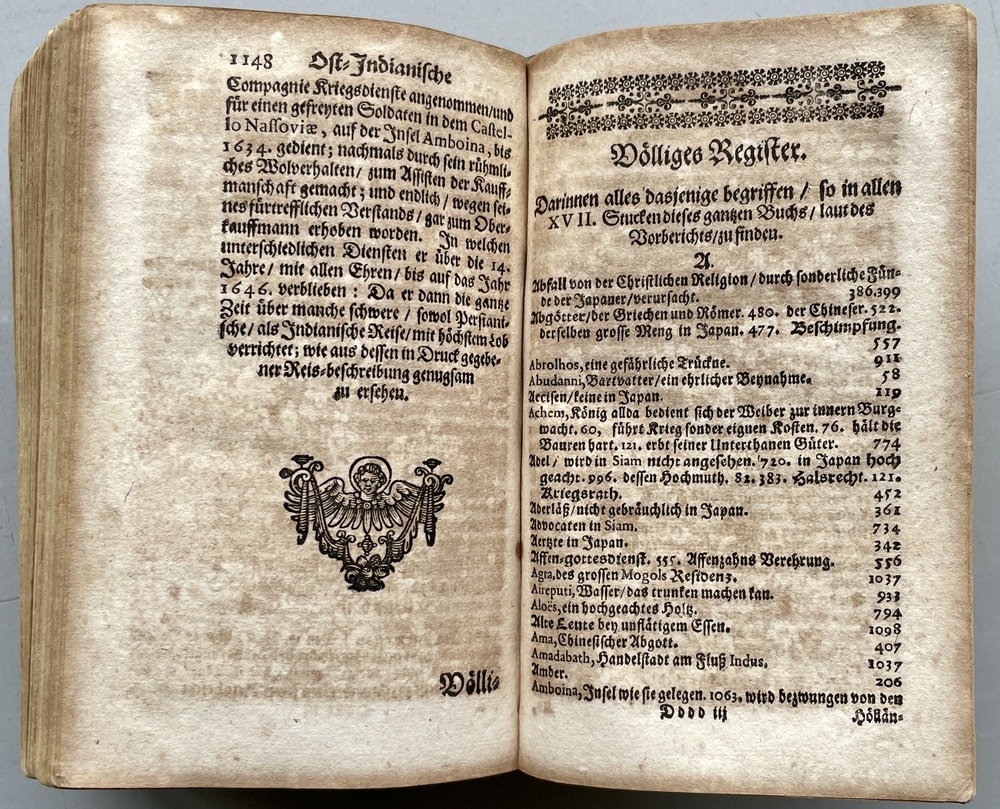 1148 Ost-Indianische
Compagnie Kriegsdienste angenommen/und
für einen gefreyten Soldaten in dem Castel-
lo Nassoviæ, auf der Insel Amboina, bis
1634. gedient; nachmals durch sein rühmli-
ches Wolverhalten/ zum Assisten der Kauff-
manschaft gemacht; und endlich/ wegen sei-
nes fürtrefflichen Verstands/ gar zum Ober-
kauffmann erhoben worden. In welchen
unterschiedlichen Diensten er über die 14.
Jahre/ mit allen Ehren/ bis auf das Jahr
1646. verblieben: Da er dann die gantze
Zeit über manche schwere/ sowol Persiani-
sche/ als Indianische Reise/ mit höchstem Lob
verrichtet; wie aus dessen in Druck gegebe-
ner Reis-beschreibung genugsam
zu ersehen.
Völli-
Völliges Register.
Darinnen alles dasjenige begriffen/ so in allen
XVII. Stucken dieses gantzen Buchs/ laut des
Vorberichts/zu finden.
A.
Abfall von der Christlichen Religion/ durch sonderliche Fün-
de der Japaner/verursacht. 386.399
Abgötter/der Griechen und Römer. 480. der Chineser. 522.
derselben grosse Meng in Japan. 477. Beschimpfung.
557
Abrolhos, eine gefährliche Trückne. 911
Abudanni, Bartvatter/ein ehrlicher Beynahme. 58
Accisen/keine in Japan. 119
Achem, König allda bedient sich der Weiber zur innern Burg-
wacht. 60, führt Krieg sonder eignen Kosten. 76. hält die
Bauren hart. 121. erbt seiner Unterthanen Güter. 774
Adel/ wird in Siam nicht angesehen. 720. in Japan hoch
geacht. 996. dessen Hochmuth. 82. 383. Halsrecht. 121.
Kriegsrath. 452
Aderläß/nicht gebräuchlich in Japan. 361
Advocaten in Siam. 734
Aertzte in Japan. 342
Affen-gottesdienst. 555. Affenzahns Verehrung. 556
Agra, des grossen Mogols Residenz. 1037
Aireputi, Wasser/das trunken machen kan. 933
Aloës, ein hochgeachtes Holtz. 794
Alte Leute bey unflätigem Essen. 1098
Ama, Chinesischer Abgott. 407
Amadabath, Handelstadt am Fluß Indus. 1037
Amber. 206
Amboina, Insel wie sie gelegen. 1063. wird bezwungen von den
Dddd iij Höllän-